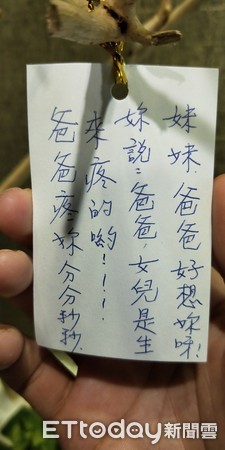 妹妹爸爸好想妳呀!
妳說:爸爸,女兒是生
來疼的喲!!!
爸爸疼妳分分秒秒.
ETtoday新聞雲